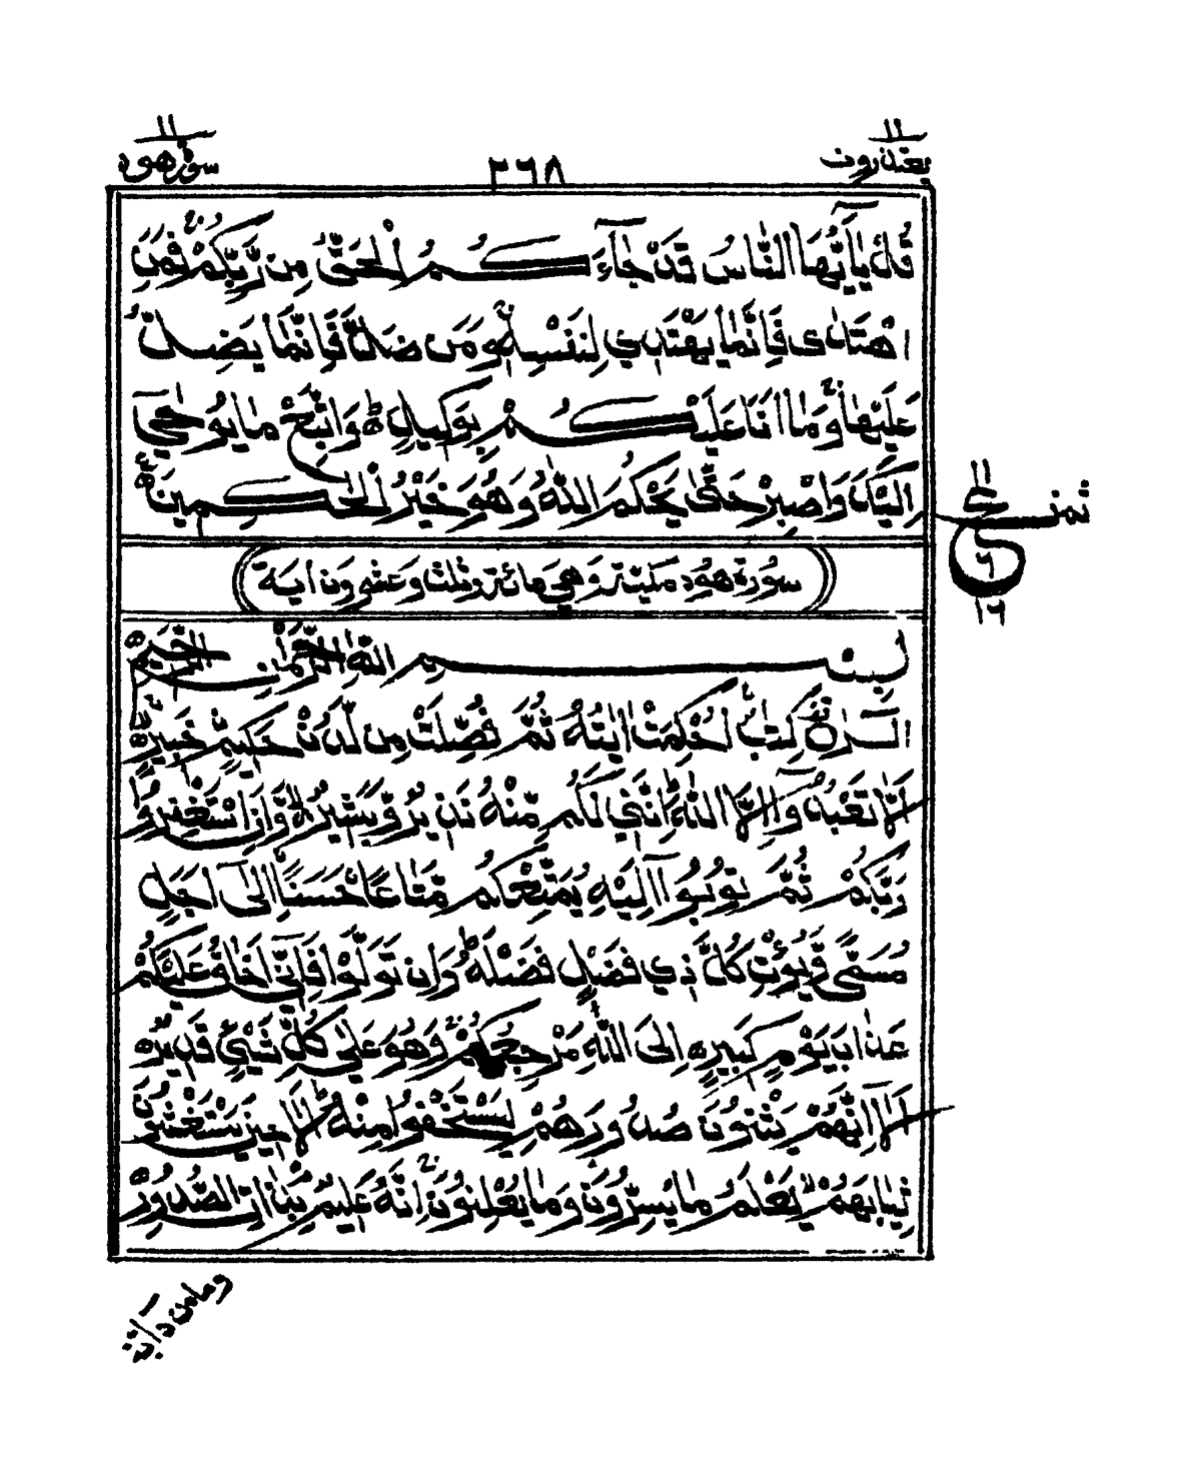 ١١
يعتذرون
٢٦٨
١١
سورة هود
قُلْ يٰٓاَيُّهَا النَّاسُ قَدْ جَآءَكُمُ الْحَقُّ مِنْ رَّبِّكُمْ ۚ فَمَنِ
اهْتَدٰى فَاِنَّمَا يَهْتَدِيْ لِنَفْسِهٖ ۚ وَمَنْ ضَلَّ فَاِنَّمَا يَضِلُّ
عَلَيْهَا ۚ وَمَآ اَنَا عَلَيْكُمْ بِوَكِيْلٍ ؕ وَاتَّبِعْ مَا يُوْحٰٓى
اِلَيْكَ وَاصْبِرْ حَتّٰى يَحْكُمَ اللّٰهُ ۚ وَهُوَ خَيْرُ الْحٰكِمِيْنَ
ثمن
١١
ع
٦
١٦
سُوْرَةُ هُوْدٍ مَكِّيَّةٌ وَّهِيَ مِائَةٌ وَّثَلٰثٌ وَّعِشْرُوْنَ اٰيَةً
بِسْمِ اللّٰهِ الرَّحْمٰنِ الرَّحِيْمِ
الٓرٰ كِتٰبٌ اُحْكِمَتْ اٰيٰتُهٗ ثُمَّ فُصِّلَتْ مِنْ لَّدُنْ حَكِيْمٍ خَبِيْرٍ
اَلَّا تَعْبُدُوْٓا اِلَّا اللّٰهَ ؕ اِنَّنِيْ لَكُمْ مِّنْهُ نَذِيْرٌ وَّبَشِيْرٌ ۙ وَّاَنِ اسْتَغْفِرُوْا
رَبَّكُمْ ثُمَّ تُوْبُوْٓا اِلَيْهِ يُمَتِّعْكُمْ مَّتَاعًا حَسَنًا اِلٰٓى اَجَلٍ
مُّسَمًّى وَّيُؤْتِ كُلَّ ذِيْ فَضْلٍ فَضْلَهٗ ؕ وَاِنْ تَوَلَّوْا فَاِنِّيْٓ اَخَافُ عَلَيْكُمْ
عَذَابَ يَوْمٍ كَبِيْرٍ اِلَى اللّٰهِ مَرْجِعُكُمْ ۚ وَهُوَ عَلٰى كُلِّ شَيْءٍ قَدِيْرٌ
اَلَآ اِنَّهُمْ يَثْنُوْنَ صُدُوْرَهُمْ لِيَسْتَخْفُوْا مِنْهُ ؕ اَلَا حِيْنَ يَسْتَغْشُوْنَ
ثِيَابَهُمْ ۙ يَعْلَمُ مَا يُسِرُّوْنَ وَمَا يُعْلِنُوْنَ ۚ اِنَّهٗ عَلِيْمٌ ۢ بِذَاتِ الصُّدُوْرِ
وما من دآبة